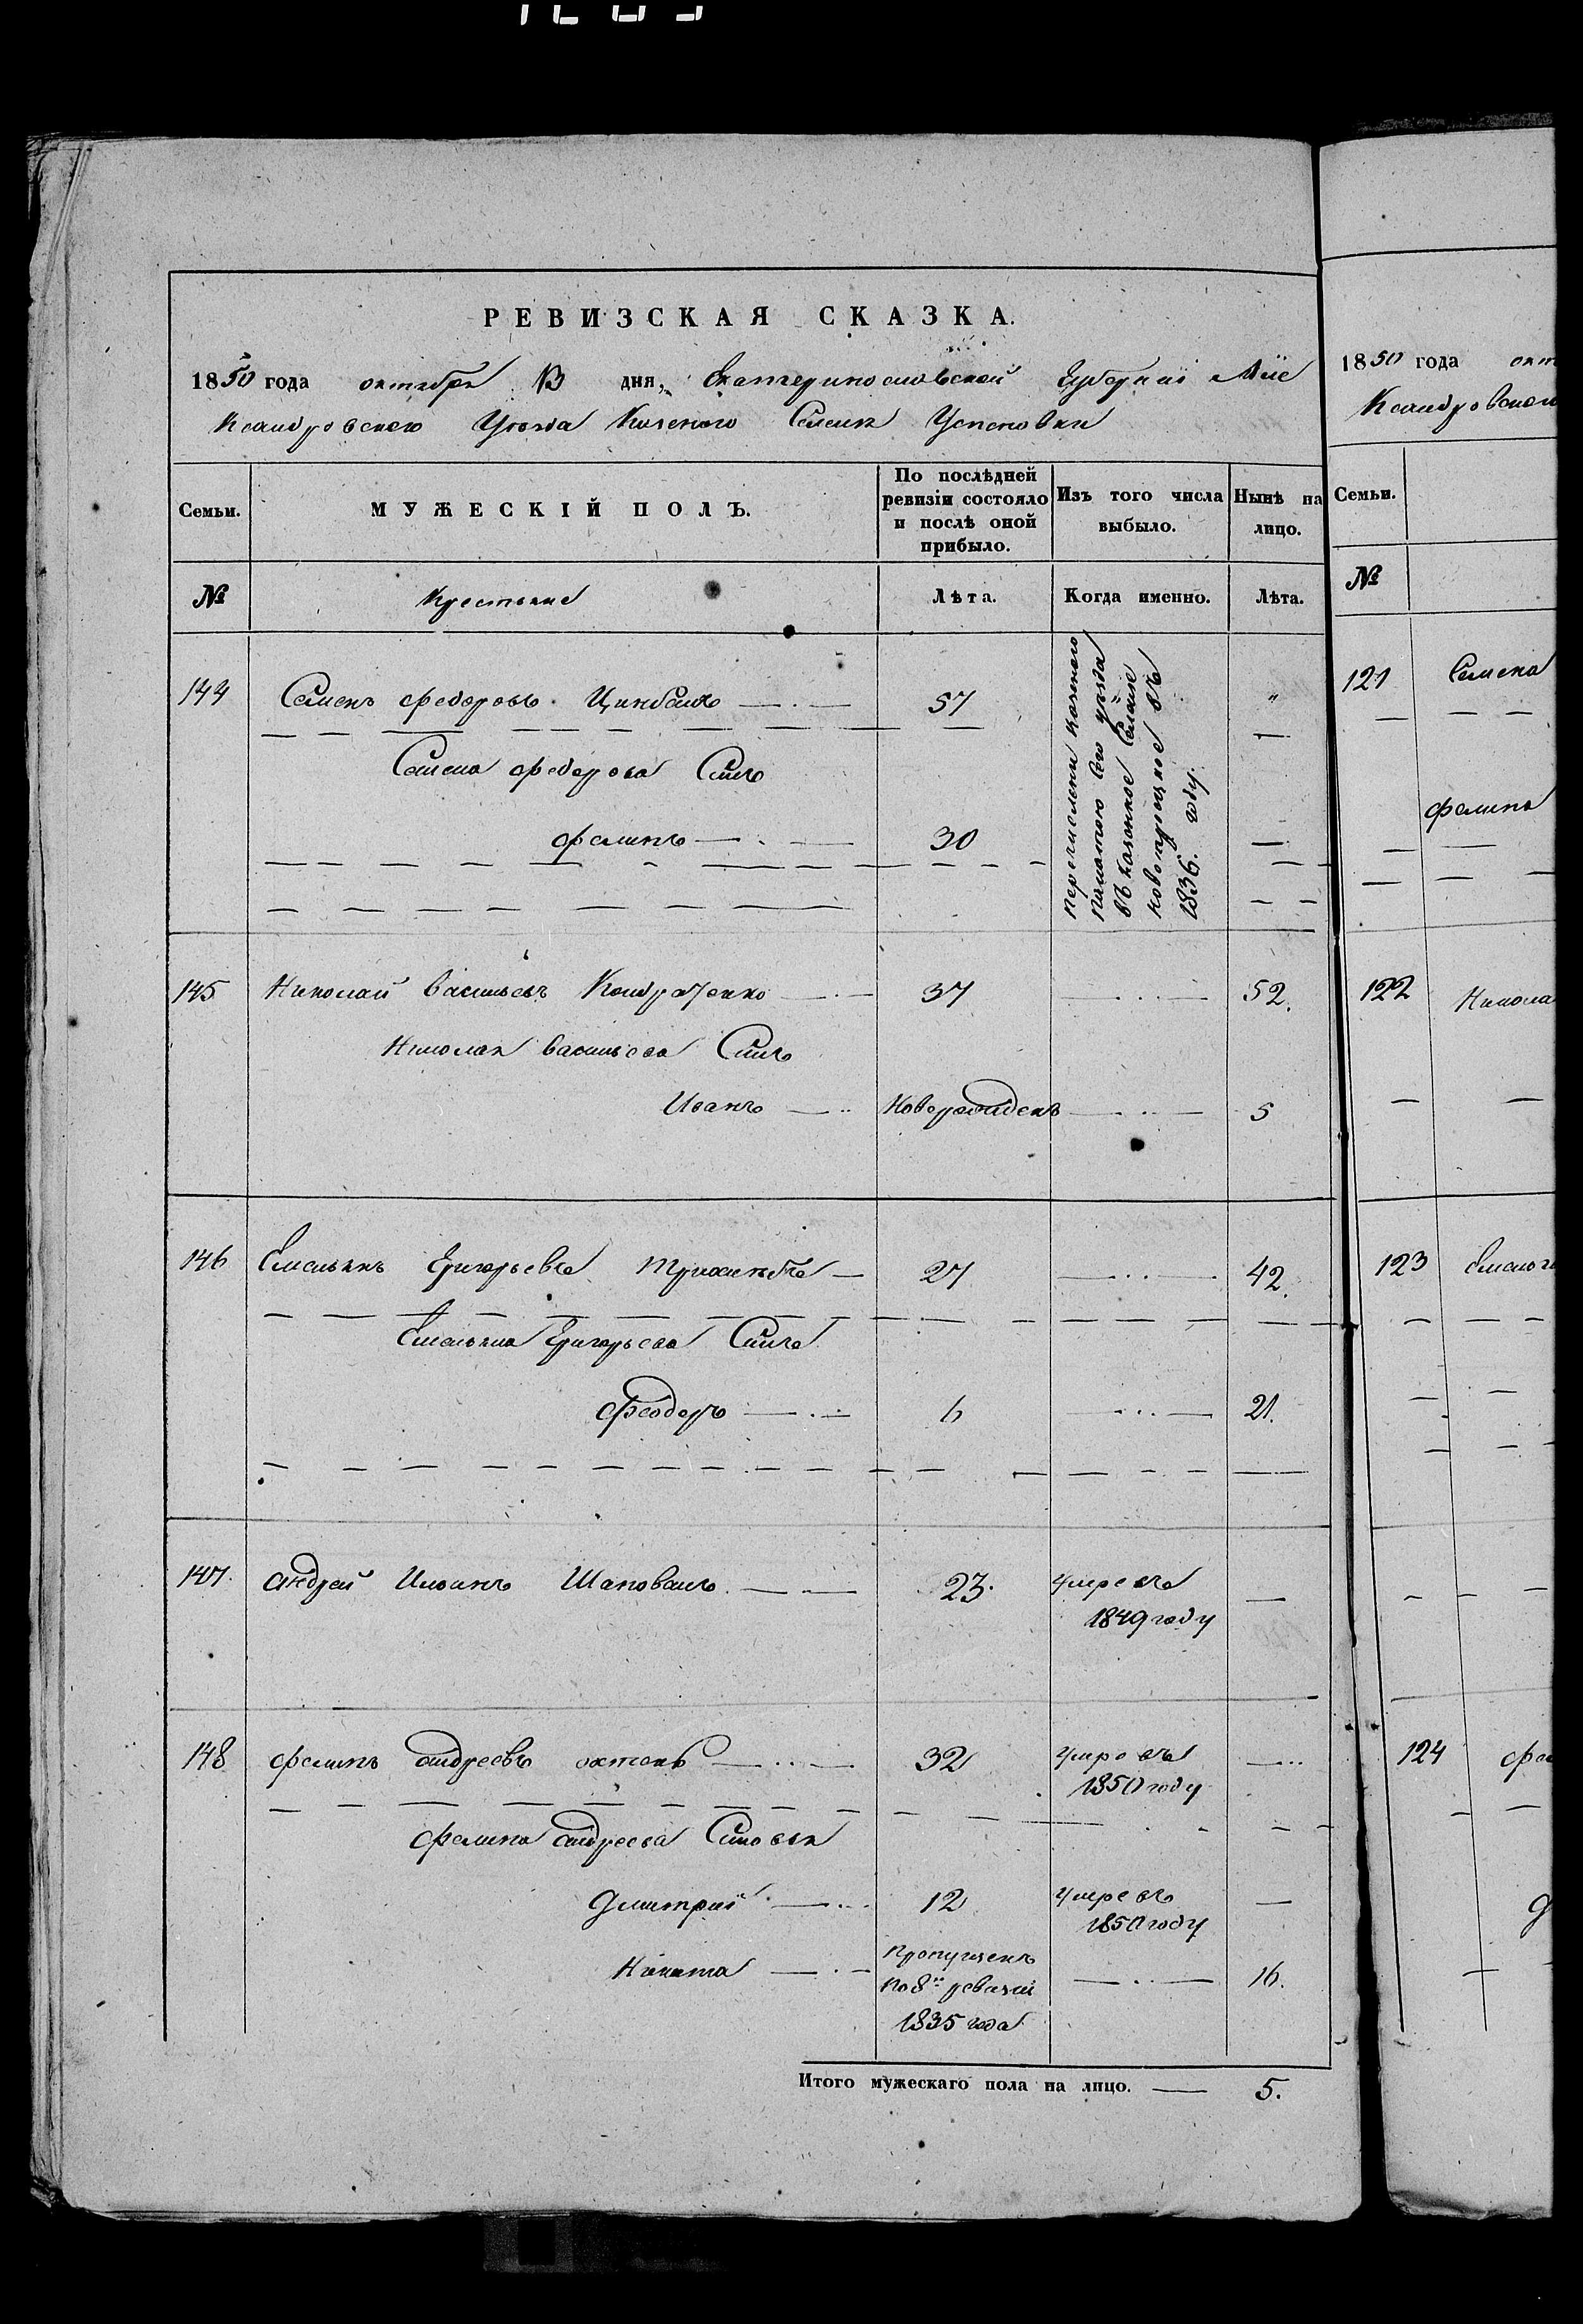 РЕВИЗСКАЯ СКАЗКА.
1850 года октября 13 дня, Екатеринославской Губерніи Але
ксандровскаго Уезда Казеного Селенія Успеновки
Семьи.
МУЖЕСКІЙ ПОЛЪ.
По послѣдней ревизіи состояло и послѣ оной прибыло.
Изъ того числа выбыло.
Нынѣ на лицо.
№
Крестьяне
Лѣта.
Когда именно.
Лѣта.
144 Семенъ федоровъ Цимбалъ 57 "
Семена федорова Сынъ
филипъ 30
перечислени казеного
палатою сего уезда
въ казенное Селеніе
новотроицкое въ
1836. году.
145 Николай васильевъ Кондратенко 37 52.
Николая васильева Сынъ
Иванъ Новорожденъ 5
146 Емельянъ Григорьевъ 27 42.
Емельяна Григорьева Сынъ
Феодоръ 6 21.
147. андрей Ильинъ Шаповалъ 23. умре въ
1849 году
148 филипъ андреевъ 32 умре въ
1850 году
филипа андреева Сыновья
Дмитрій 12 умре въ
1850 году
Никита Пропущенъ 16.
по 8й ревизіи
1835 года
Итого мужескаго пола на лицо. 5.
1850 года окт
ксандровского
Семьи.
№
121 Семена
филипа
122 Никола
123
124